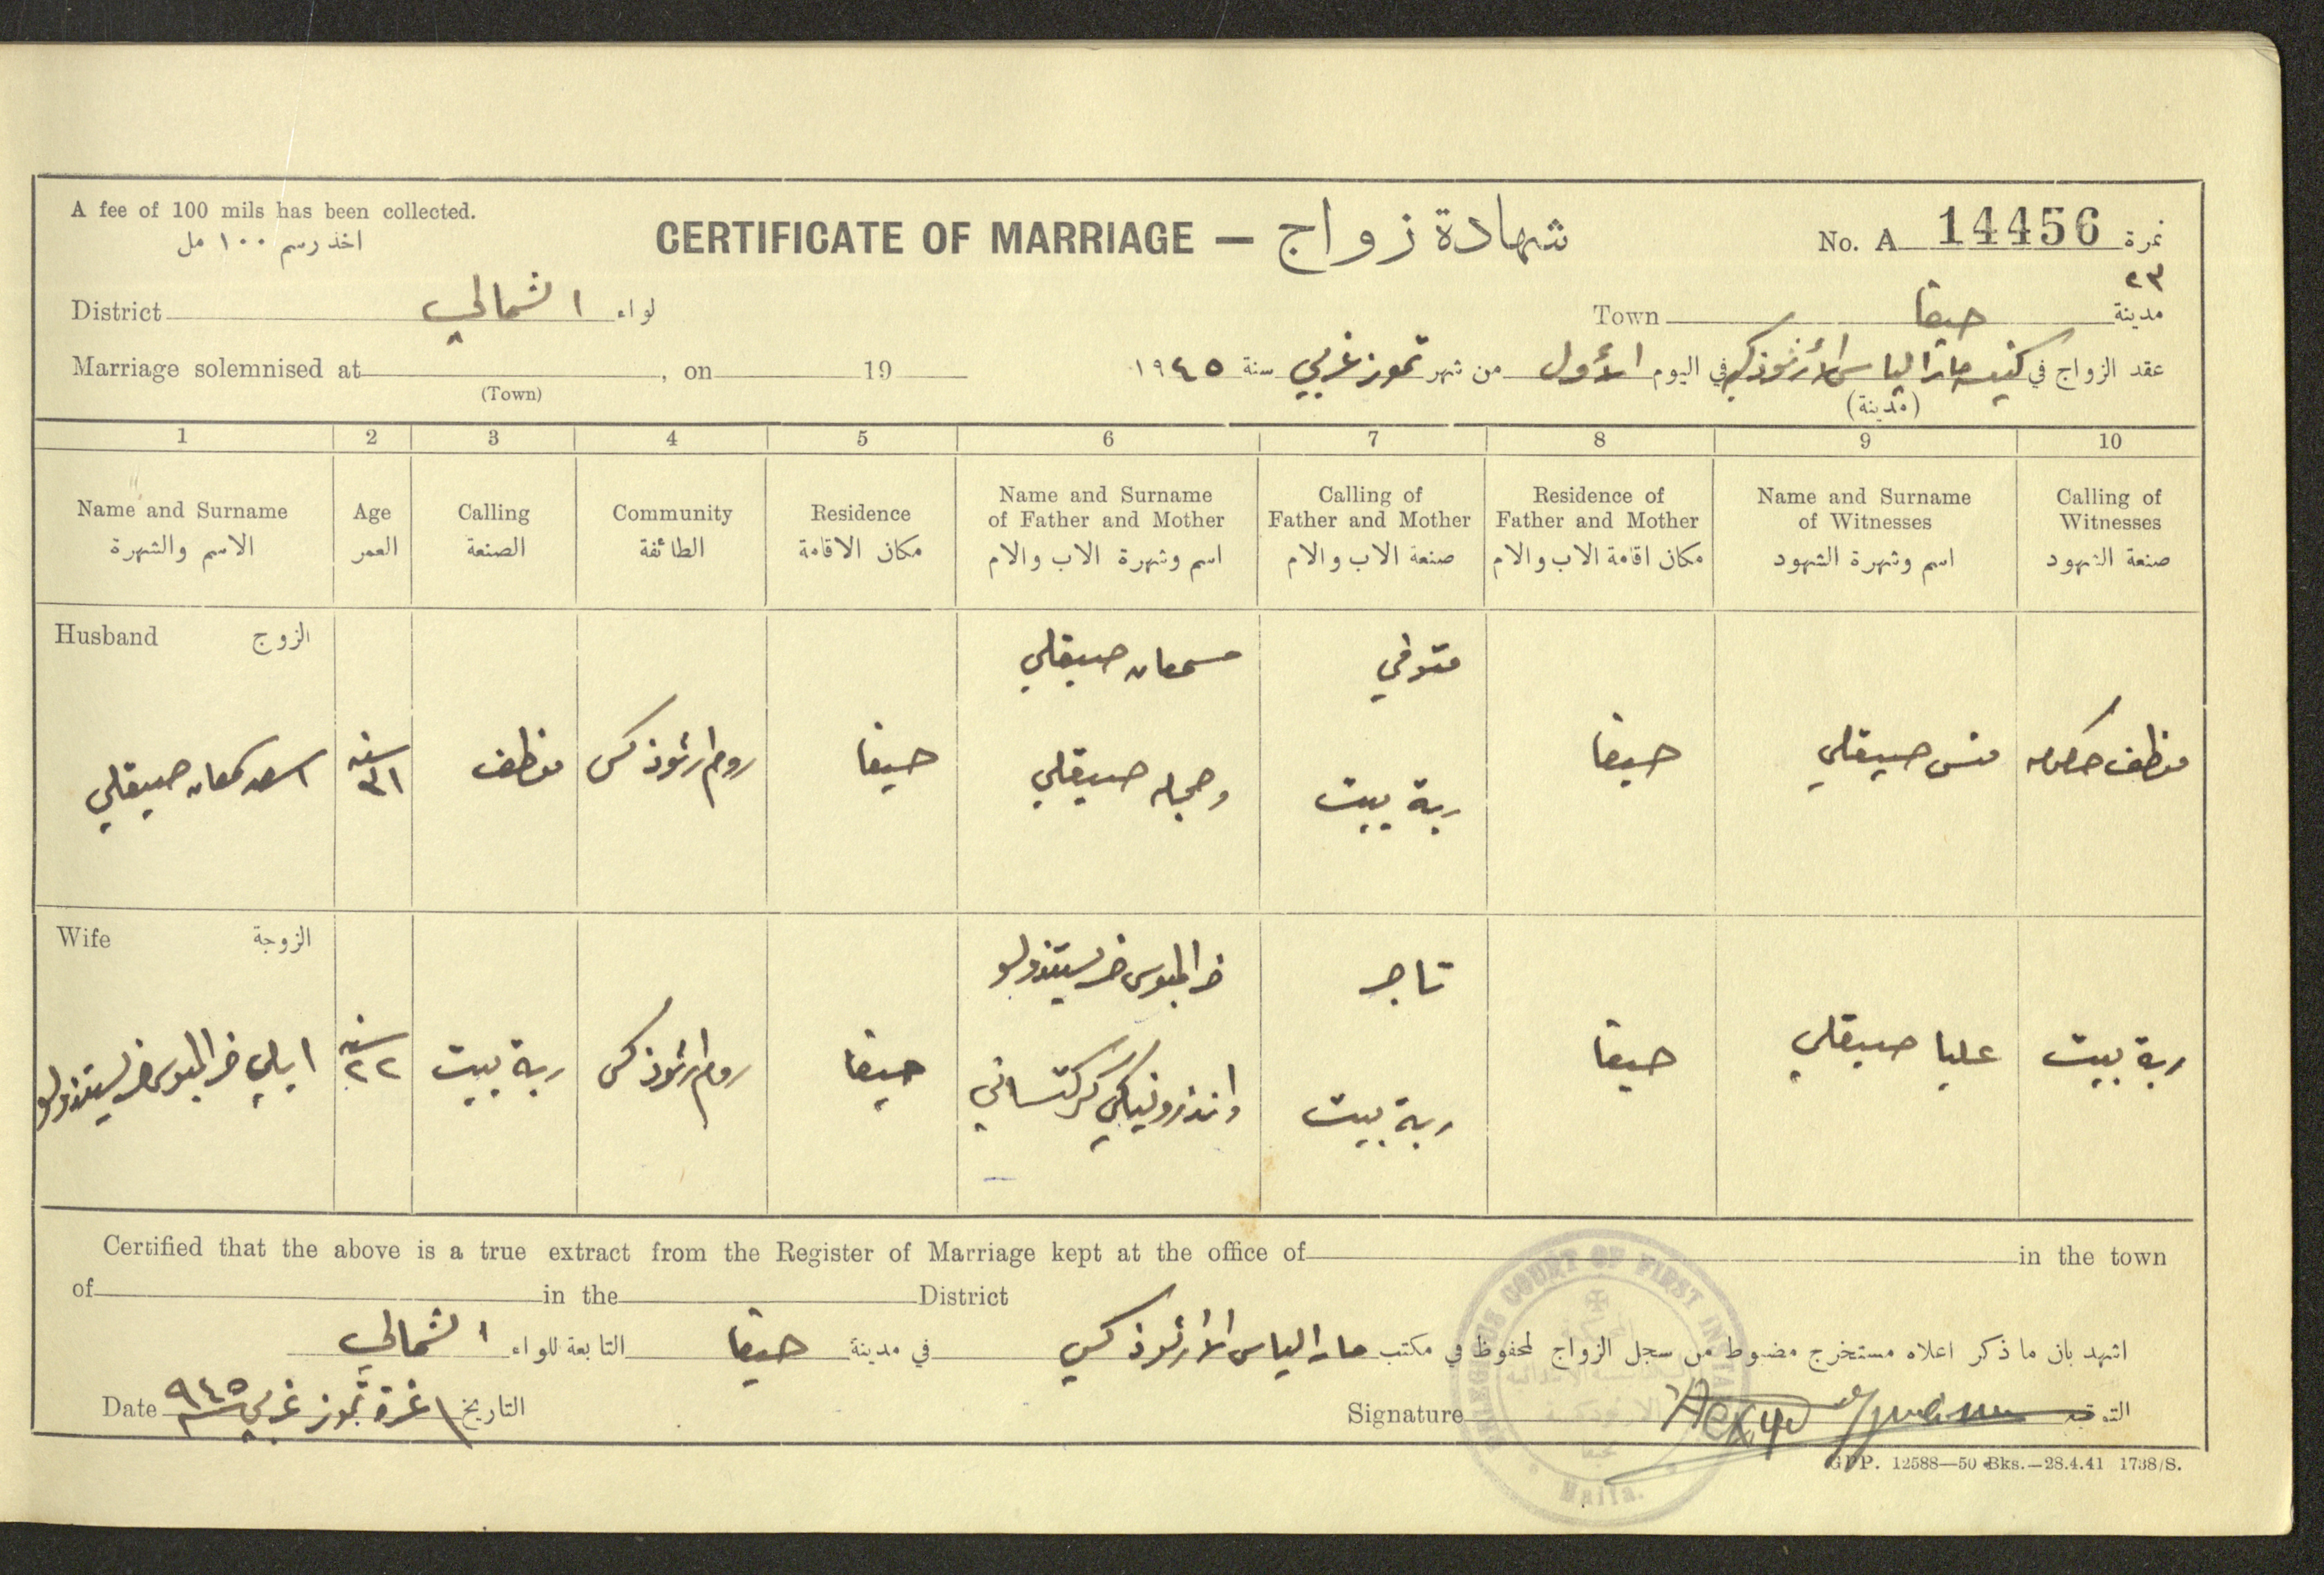 A fee of 100 mils has been collected.
اخذ رسم ١٠٠ مل
CERTIFICATE OF MARRIAGE — شهادة زواج
No. A 14456 نمرة
٢٣
District الشمالي لواء
Town حيفا مدينة
Marriage solemnised at , on 19
(Town)
عقد الزواج في كنيسة مار الياس الأرثوذكسية في اليوم الأول من شهر تموز غربي سنة ١٩٤٥
(مدينة)
1 2 3 4 5 6 7 8 9 10
Name and Surname
الاسم والشهرة
Age
العمر
Calling
الصنعة
Community
الطائفة
Residence
مكان الاقامة
Name and Surname
of Father and Mother
اسم وشهرة الاب والام
Calling of
Father and Mother
صنعة الاب والام
Residence of
Father and Mother
مكان اقامة الاب والام
Name and Surname
of Witnesses
اسم وشهرة الشهود
Calling of
Witnesses
صنعة الشهود
Husband الزوج
اسعد سمعان صيقلي
سنة
٣١
موظف
روم ارثوذكس
حيفا
سمعان صيقلي
صيقلي
متوفي
ربة بيت
حيفا
صيقلي
موظف حكومه
Wife الزوجة
ايلي خرالمبوس خريستذولو
سنة
٢٢
ربة بيت
روم ارثوذكس
حيفا
خرالمبوس خريستذولو
واندرونيكي
تاجر
ربة بيت
حيفا
عليا صيقلي
ربة بيت
Certified that the above is a true extract from the Register of Marriage kept at the office of in the town
of in the District
اشهد بان ما ذكر اعلاه مستخرج مضبوط من سجل الزواج المحفوظ في مكتب مار الياس الارثوذكسي في مدينة حيفا التابعة للواء الشمالي
Date غرة تموز غربي سنة ٩٤٥ التاريخ
Signature التوقيع
RELIGIOUS COURT OF FIRST INSTANCE
Haifa.
GPP. 12588—50 Bks.—28.4.41 1738/S.